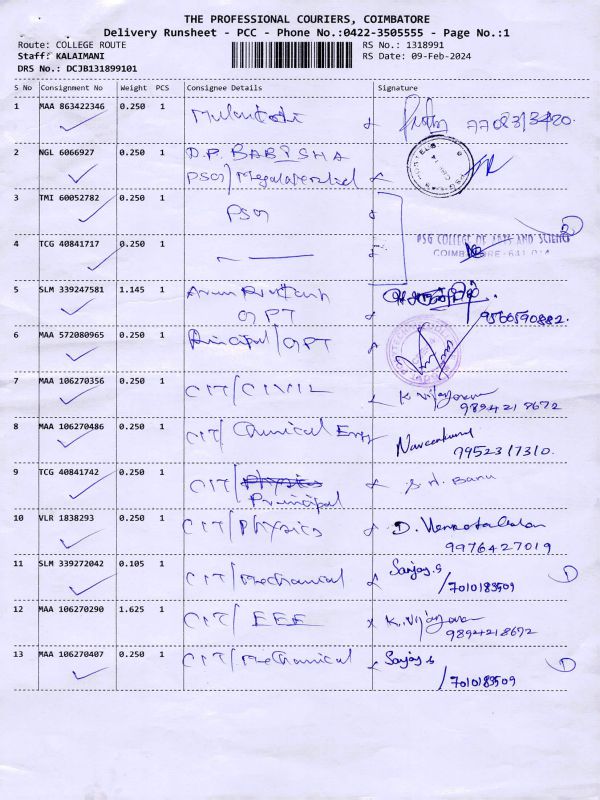 THE PROFESSIONAL COURIERS, COIMBATORE
Delivery Runsheet - PCC - Phone No.:0422-3505555 - Page No.:1
Route: COLLEGE ROUTE
RS No.: 1318991
Staff: KALAIMANI
RS Date: 09-Feb-2024
DRS No.: DCJB131899101
S No Consignment No Weight PCS Consignee Details Signature
1 MAA 863422346 0.250 1
2 NGL 6066927 0.250 1 D.P. BABISHA
PSG/
3 TMI 60052782 0.250 1 PSG
PSG COLLEGE OF ARTS AND SCIENCE
4 TCG 40841717 0.250 1
COIMBATORE-641 014
5 SLM 339247581 1.145 1
GPT 9566590882.
6 MAA 572080965 0.250 1 Principal/GPT
7 MAA 106270356 0.250 1 CIT/CIVIL K. Vijayarani
9894218672
8 MAA 106270486 0.250 1 CIT/Chemical Engg Naveenkumar
9952317310.
9 TCG 40841742 0.250 1 CIT/Physics S. H. Banu
Principal
10 VLR 1838293 0.250 1 CIT/Physics D. Venkatachalam
9976427019
11 SLM 339272042 0.105 1 CIT/Mechanical Sanjay.S
/7010183509
12 MAA 106270290 1.625 1 CIT/EEE K. Vijayarani
9894218672
13 MAA 106270407 0.250 1 CIT/Mechanical Sanjay.S
/7010183509